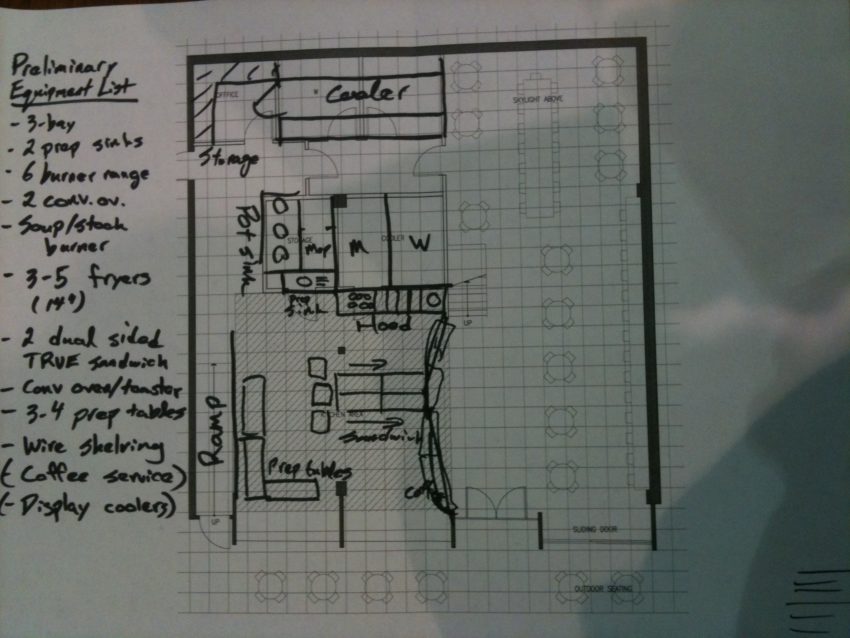 Preliminary
Equipment List
- 3-bay
- 2 prep sinks
- 6 burner range
- 2 conv. ov.
- Soup/stock
burner
- 3-5 fryers
(14")
- 2 dual sided
TRUE sandwich
- Conv oven/toaster
- 3-4 prep tables
- Wire shelving
(- Coffee service)
(- Display coolers)
OFFICE
Cooler
SKYLIGHT ABOVE
Storage
Pot sink
STORAGE
Mop
M
COOLER
W
Prep
sink
Hood
UP
Ramp
KITCHEN AREA
Sandwich
Prep tables
UP
SLIDING DOOR
OUTDOOR SEATING